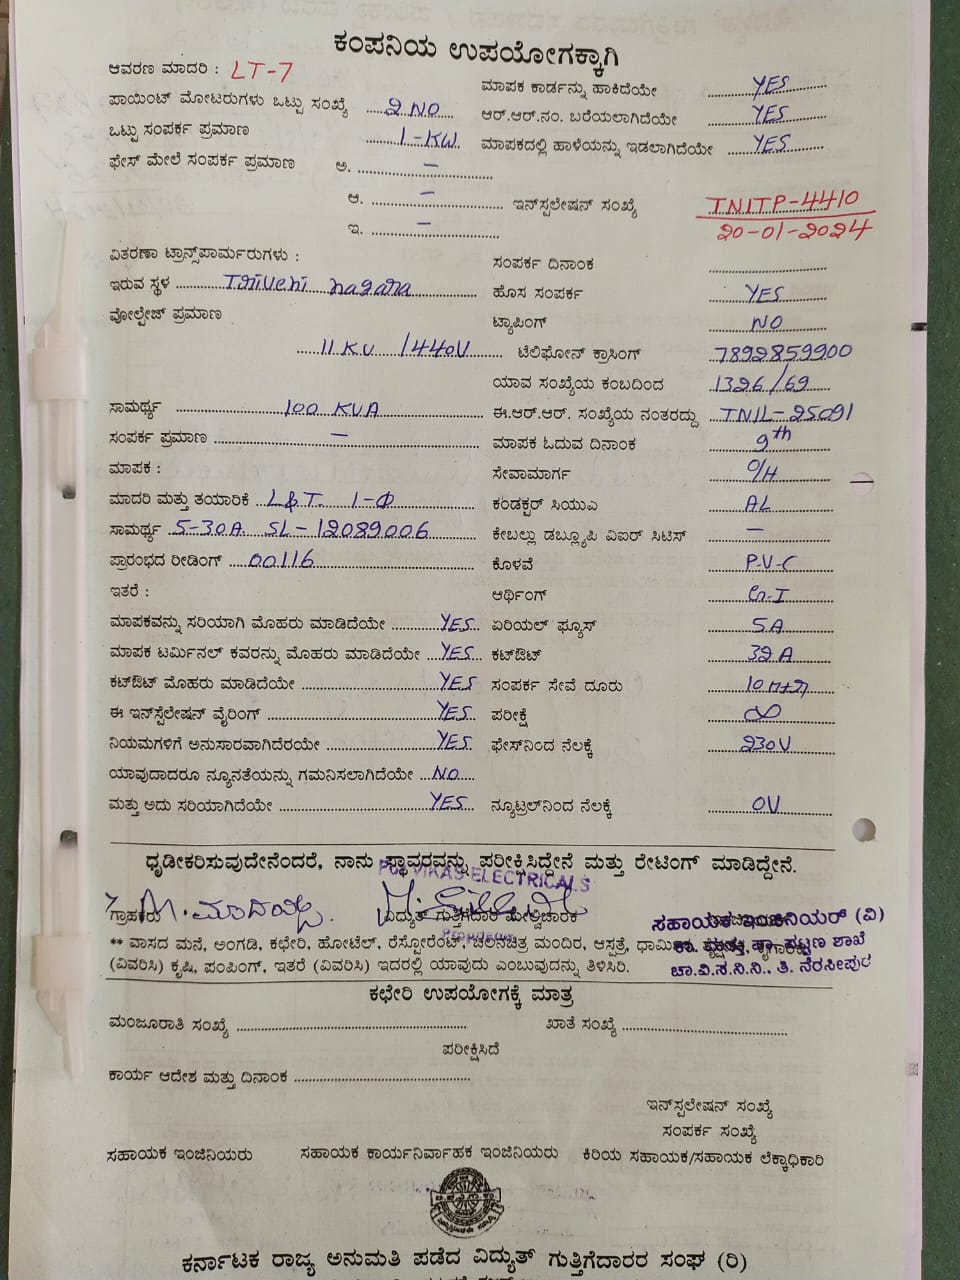 ಕಂಪನಿಯ ಉಪಯೋಗಕ್ಕಾಗಿ
ಆವರಣ ಮಾದರಿ : LT-7
ಮಾಪಕ ಕಾರ್ಡನ್ನು ಹಾಕಿದೆಯೇ YES
ಪಾಯಿಂಟ್ ಮೋಟರುಗಳು ಒಟ್ಟು ಸಂಖ್ಯೆ 2 NO
ಆರ್.ಆರ್.ನಂ. ಬರೆಯಲಾಗಿದೆಯೇ YES
ಒಟ್ಟು ಸಂಪರ್ಕ ಪ್ರಮಾಣ 1-KW.
ಮಾಪಕದಲ್ಲಿ ಹಾಳೆಯನ್ನು ಇಡಲಾಗಿದೆಯೇ YES
ಫೇಸ್ ಮೇಲೆ ಸಂಪರ್ಕ ಪ್ರಮಾಣ ಅ. –
ಆ. –
ಇನ್‌ಸ್ಪಲೇಷನ್ ಸಂಖ್ಯೆ TNITP-4410
20-01-2024
ಇ. –
ವಿತರಣಾ ಟ್ರಾನ್ಸ್‌ಪಾರ್ಮರುಗಳು :
ಸಂಪರ್ಕ ದಿನಾಂಕ
ಇರುವ ಸ್ಥಳ Thiveni nagara
ಹೊಸ ಸಂಪರ್ಕ YES
ವೋಲ್ಟೇಜ್ ಪ್ರಮಾಣ
ಟ್ಯಾಪಿಂಗ್ NO
11 KV /440V
ಟೆಲಿಫೋನ್ ಕ್ರಾಸಿಂಗ್ 7892859900
ಯಾವ ಸಂಖ್ಯೆಯ ಕಂಬದಿಂದ 1326/69
ಸಾಮರ್ಥ್ಯ 100 KVA
ಈ.ಆರ್.ಆರ್. ಸಂಖ್ಯೆಯ ನಂತರದ್ದು TNIL-25091
ಸಂಪರ್ಕ ಪ್ರಮಾಣ –
ಮಾಪಕ ಓದುವ ದಿನಾಂಕ 9th
ಮಾಪಕ :
ಸೇವಾಮಾರ್ಗ O/H
ಮಾದರಿ ಮತ್ತು ತಯಾರಿಕೆ L&T. 1-Φ
ಕಂಡಕ್ಟರ್ ಸಿಯುಎ AL
ಸಾಮರ್ಥ್ಯ 5-30A SL-12089006
ಕೇಬಲ್ಲು ಡಬ್ಲ್ಯೂಪಿ ವಿಐರ್ ಸಿಟಿಸ್ –
ಪ್ರಾರಂಭದ ರೀಡಿಂಗ್ 00116
ಕೊಳವೆ P.V.C
ಇತರೆ :
ಆರ್ಥಿಂಗ್ G.I
ಮಾಪಕವನ್ನು ಸರಿಯಾಗಿ ಮೊಹರು ಮಾಡಿದೆಯೇ YES
ಏರಿಯಲ್ ಫ್ಯೂಸ್ 5A
ಮಾಪಕ ಟರ್ಮಿನಲ್ ಕವರನ್ನು ಮೊಹರು ಮಾಡಿದೆಯೇ YES
ಕಟ್‌ಔಟ್ 32 A
ಕಟ್‌ಔಟ್ ಮೊಹರು ಮಾಡಿದೆಯೇ YES
ಸಂಪರ್ಕ ಸೇವೆ ದೂರು 10
ಈ ಇನ್‌ಸ್ಪೆಲೇಷನ್ ವೈರಿಂಗ್ YES
ಪರೀಕ್ಷೆ ∞
ನಿಯಮಗಳಿಗೆ ಅನುಸಾರವಾಗಿದೆರಯೇ YES
ಫೇಸ್‌ನಿಂದ ನೆಲಕ್ಕೆ 230V
ಯಾವುದಾದರೂ ನ್ಯೂನತೆಯನ್ನು ಗಮನಿಸಲಾಗಿದೆಯೇ NO
ಮತ್ತು ಅದು ಸರಿಯಾಗಿದೆಯೇ YES
ನ್ಯೂಟ್ರಲ್‌ನಿಂದ ನೆಲಕ್ಕೆ 0V
ಧೃಡೀಕರಿಸುವುದೇನೆಂದರೆ, ನಾನು ಸ್ಥಾವರವನ್ನು ಪರೀಕ್ಷಿಸಿದ್ದೇನೆ ಮತ್ತು ರೇಟಿಂಗ್ ಮಾಡಿದ್ದೇನೆ.
VIKAS ELECTRICALS
ಗ್ರಾಹಕರು
ವಿದ್ಯುತ್ ಗುತ್ತಿಗೆದಾರ ಮೇಲ್ವಿಚಾರಕ
ಸಹಾಯಕ ಇಂಜಿನಿಯರ್ (ವಿ)
** ವಾಸದ ಮನೆ, ಅಂಗಡಿ, ಕಛೇರಿ, ಹೋಟೆಲ್, ರೆಸ್ಟೋರೆಂಟ್, ಚಲನಚಿತ್ರ ಮಂದಿರ, ಆಸ್ಪತ್ರೆ,
ಪಟ್ಟಣ ಶಾಖೆ
(ವಿವರಿಸಿ) ಕೃಷಿ, ಪಂಪಿಂಗ್, ಇತರೆ (ವಿವರಿಸಿ) ಇದರಲ್ಲಿ ಯಾವುದು ಎಂಬುವುದನ್ನು ತಿಳಿಸಿರಿ.
ಚಾ.ವಿ.ಸ.ನಿ.ನಿ., ತಿ. ನರಸೀಪುರ
ಕಛೇರಿ ಉಪಯೋಗಕ್ಕೆ ಮಾತ್ರ
ಮಂಜೂರಾತಿ ಸಂಖ್ಯೆ
ಖಾತೆ ಸಂಖ್ಯೆ
ಪರೀಕ್ಷಿಸಿದೆ
ಕಾರ್ಯ ಆದೇಶ ಮತ್ತು ದಿನಾಂಕ
ಇನ್‌ಸ್ಪಲೇಷನ್ ಸಂಖ್ಯೆ
ಸಂಪರ್ಕ ಸಂಖ್ಯೆ
ಸಹಾಯಕ ಇಂಜಿನಿಯರು
ಸಹಾಯಕ ಕಾರ್ಯನಿರ್ವಾಹಕ ಇಂಜಿನಿಯರು
ಕಿರಿಯ ಸಹಾಯಕ/ಸಹಾಯಕ ಲೆಕ್ಕಾಧಿಕಾರಿ
ಕರ್ನಾಟಕ ರಾಜ್ಯ ಅನುಮತಿ ಪಡೆದ ವಿದ್ಯುತ್ ಗುತ್ತಿಗೆದಾರರ ಸಂಘ (ರಿ)